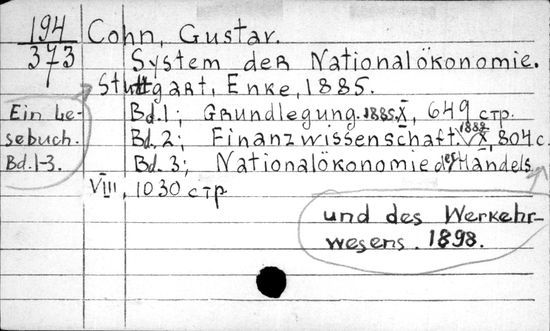 194
373
Cohn, Gustav.
System der Nationalökonomie.
Stuttgart, Enke, 1885.
Ein Le-
sebuch.
Bd. 1-3.
Bd. 1; Grundlegung. 1885. X, 649 стр.
Bd. 2; Finanzwissenschaft. 1889. X, 804 с.
Bd. 3; Nationalökonomie des Handels
und des Werkehr-
wesens. 1898.
VIII, 1030 стр.